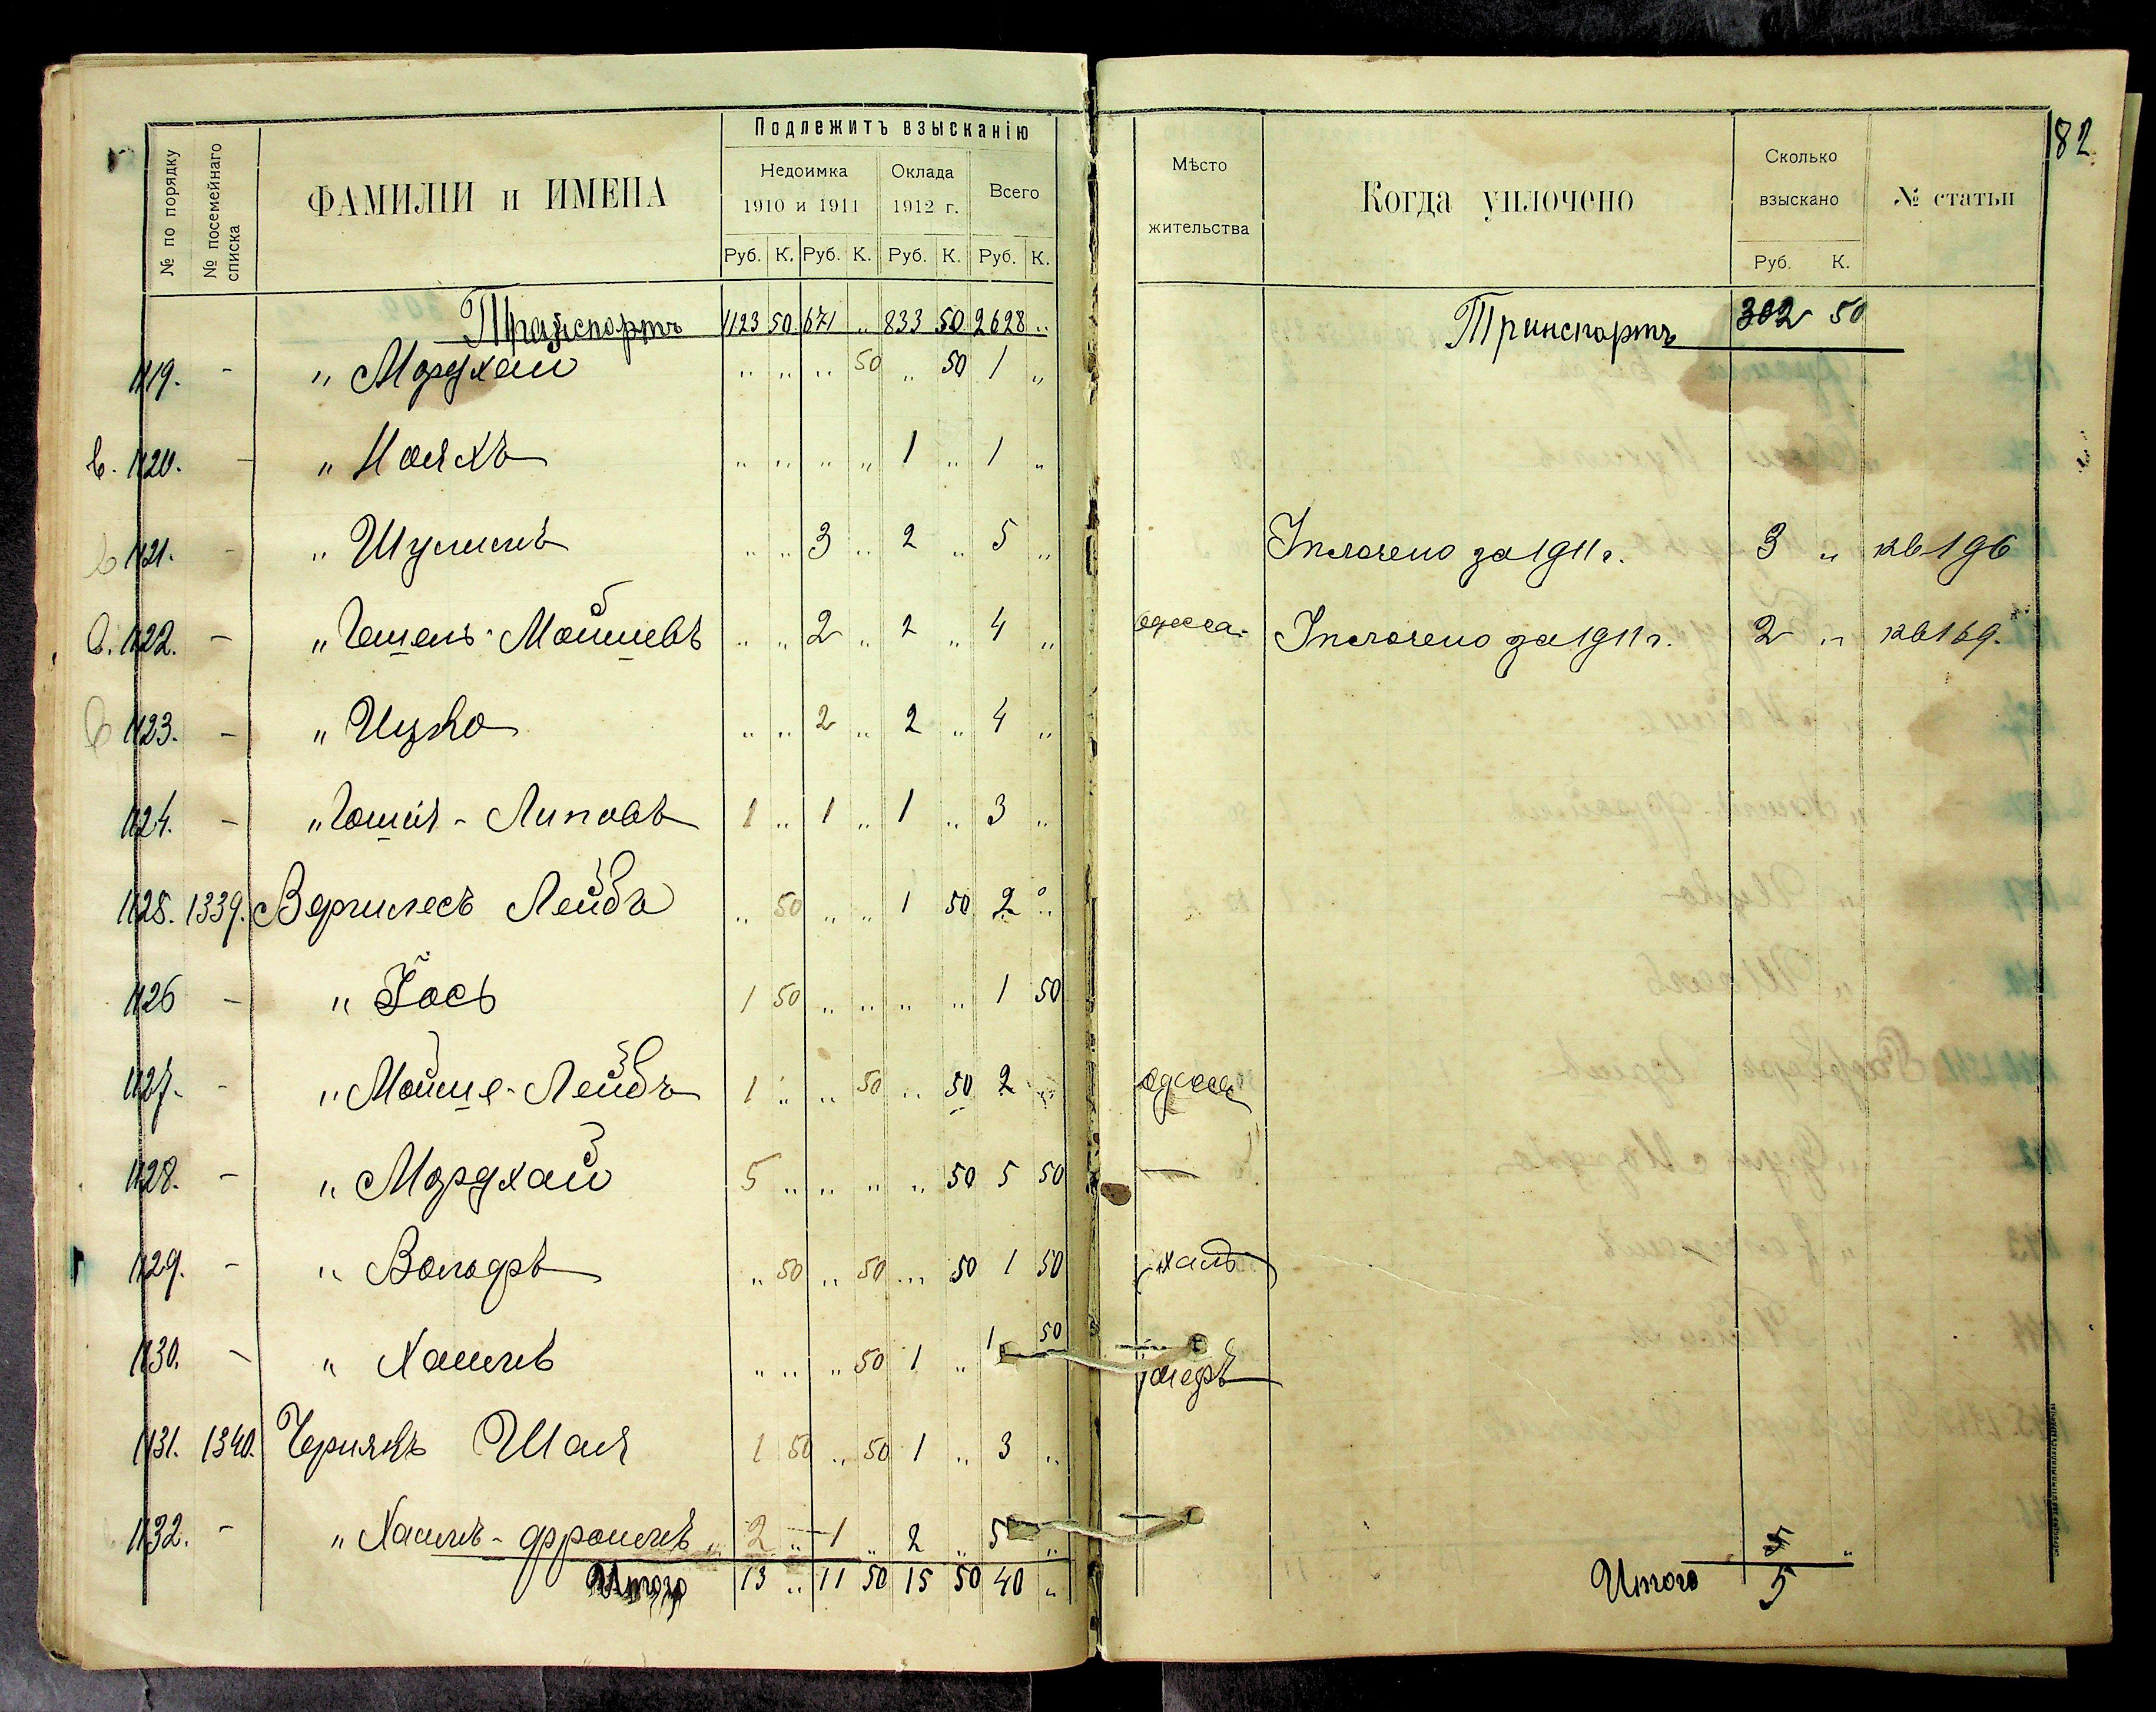 82
№ по порядку
№ посемейнаго списка
ФАМИЛІИ и ИМЕНА
Подлежитъ взысканію
Недоимка Оклада Всего
1910 и 1911 1912 г.
Руб. К. Руб. К. Руб. К. Руб. К.
Мѣсто жительства
Когда уплочено
Сколько взыскано
Руб. К.
№ статьи
Транспортъ 1123 50 671 „ 833 50 2628 „ Транспортъ 302 50
1119. - „ Мордхай „ „ „ 50 „ 50 1 „
в. 1120. - „ Нояхъ „ „ „ „ 1 „ 1 „
в 1121. - „ Шулимъ „ „ 3 „ 2 „ 5 „ Уплочено за 1911 г. 3 „ кв 196
в. 1122. - „ Гешель-Мойшевъ „ „ 2 „ 2 „ 4 „ одесса Уплочено за 1911 г. 2 „ кв 169.
в 1123. - „ Ицко „ „ 2 „ 2 „ 4 „
1124. - „ - Липовъ 1 „ 1 „ 1 „ 3 „
1125. 1339. Вергилесъ Лейбъ „ 50 „ „ 1 50 2 „
1126 - „ Іось 1 50 „ „ „ „ 1 50
1127. - „ Мойше-Лейбъ 1 „ „ 50 „ 50 2 „ одесса
1128. - „ Мордхай 5 „ „ „ „ 50 5 50 —
1129. - „ Вольфъ „ 50 „ 50 „ 50 1 50
1130. - „ Хаимъ „ „ „ 50 1 „ 1 50
1131. 1340. Чернякъ Шая 1 50 „ 50 1 „ 3 „
1132. - „ Хаимъ-Фроимъ „ 2 „ 1 „ 2 „ 5 „ 5 „
Итого 13 „ 11 50 15 50 40 „ Итого 5